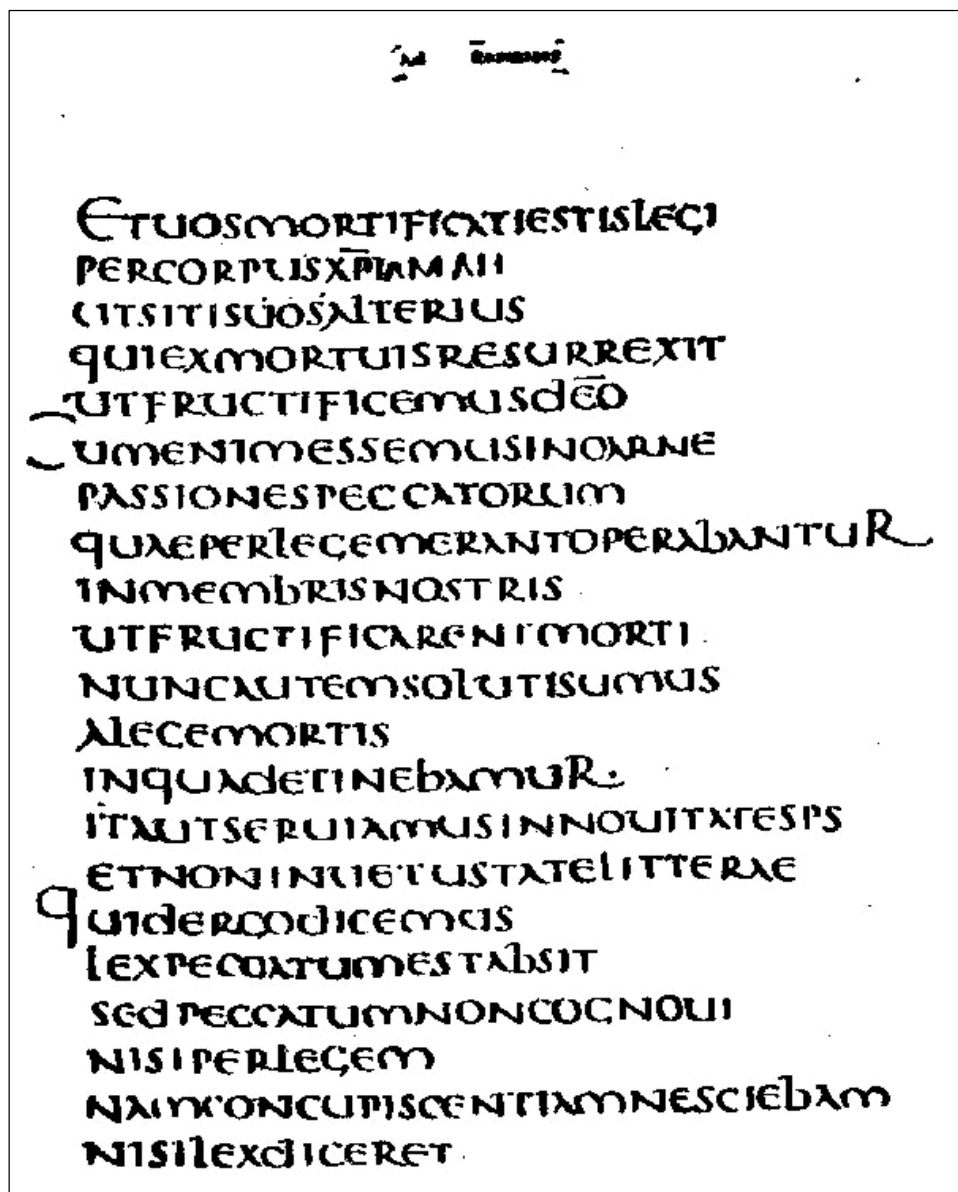 Ad Romanos
ETUOSMORTIFICATIESTISLEGI
PERCORPUSXP̅I
UTSITISUOSALTERIUS
QUIEXMORTUISRESURREXIT
UTFRUCTIFICEMUSDE̅O
UMENIMESSEMUSINCARNE
PASSIONESPECCATORUM
QUAEPERLEGEMERANTOPERABANTUR
INMEMBRISNOSTRIS
UTFRUCTIFICARENTMORTI
NUNCAUTEMSOLUTISUMUS
ALEGEMORTIS
INQUADETINEBAMUR·
ITAUTSERUIAMUSINNOUITATESPS
ETNONINUETUSTATELITTERAE
QUIDERGODICEMUS
LEXPECCATUMESTABSIT
SEDPECCATUMNONCOGNOUI
NISIPERLEGEM
NAMCONCUPISCENTIAMNESCIEBAM
NISILEXDICERET